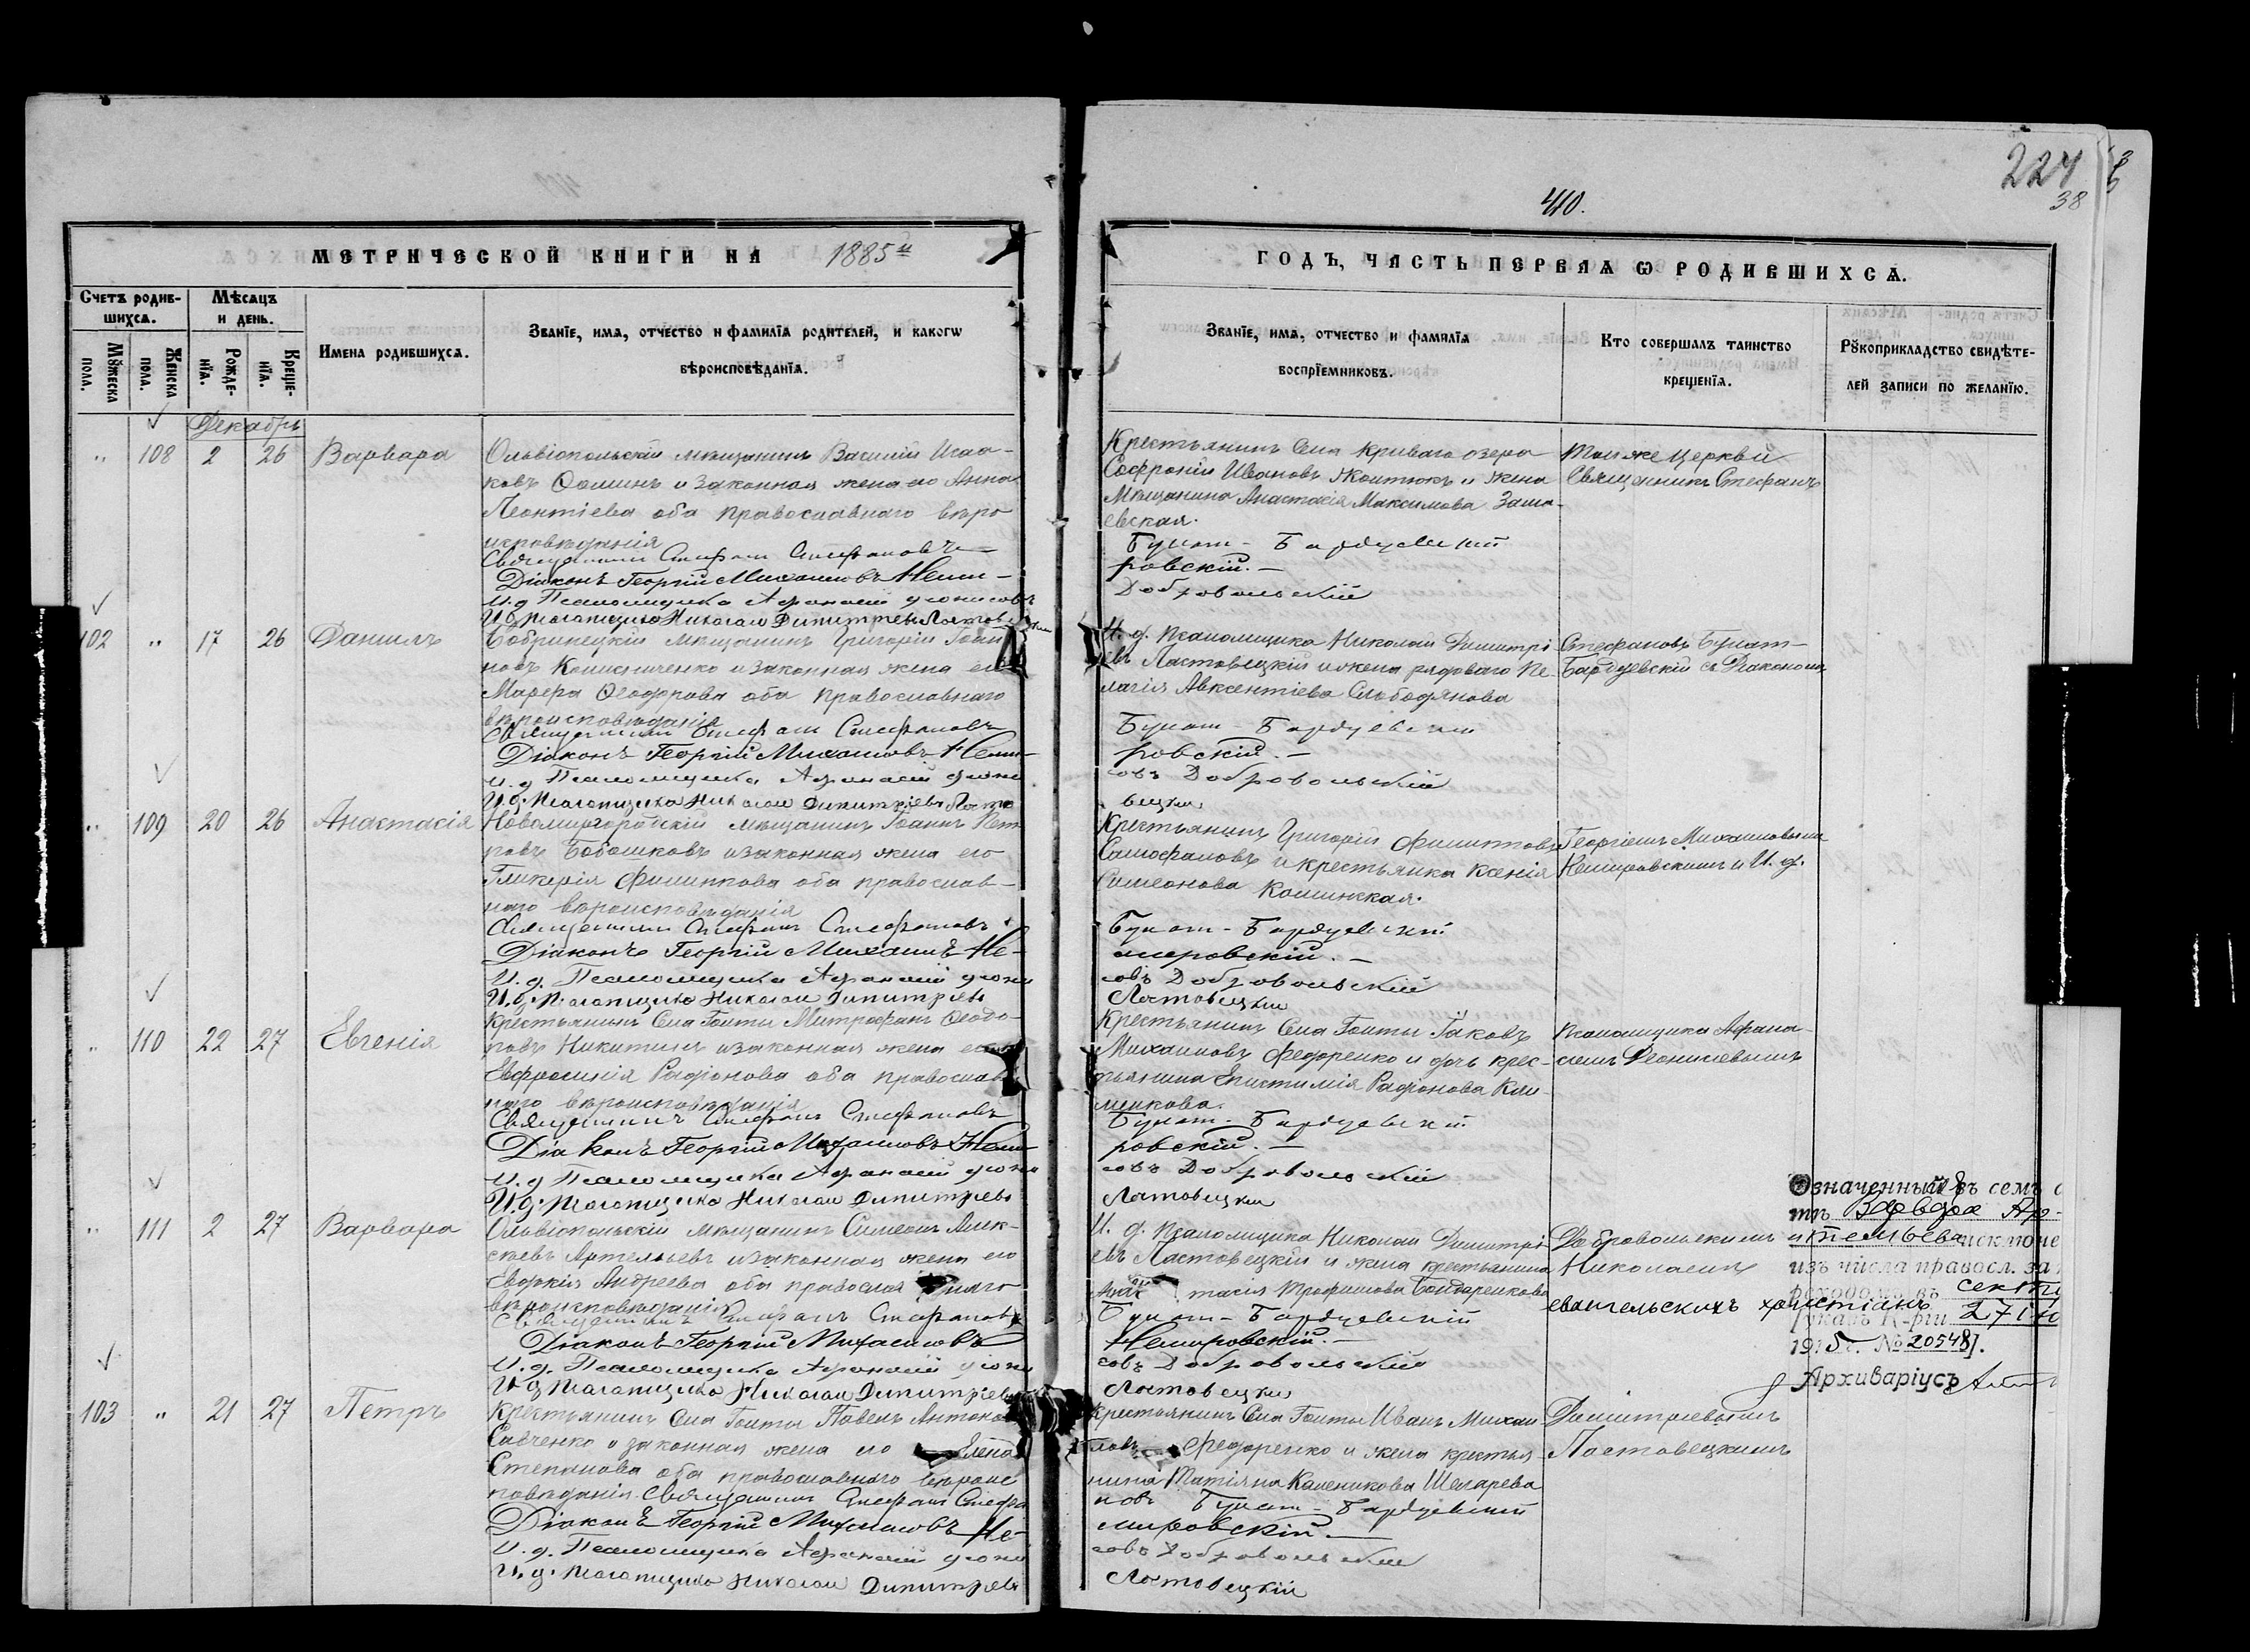 224
38
410.
МЕТРИЧЕСКОЙ КНИГИ НА 1885й
ГОДЪ, ЧАСТЬ ПЕРВАЯ Ѡ РОДИВШИХСЯ.
Счетъ родив-
шихся.
Мѣсяцъ
и день.
Мꙋжеска
пола.
Женска
пола.
Рожде-
нїя.
Креще-
нїя.
Имена родившихся.
Званїе, имя, отчество и фамилїя родителей, и какогѡ
вѣроисповѣданїя.
Званїе, имя, отчество и фамилїя
воспрїемниковъ.
Кто совершалъ таинство
крещенїя.
Рꙋкоприкладство свидѣте-
лей записи по желанїю.
Декабрь
„ 108 2 26 Варвара
Ольвіопольскій мѣщанинъ Василій Исаа-
ковъ Ѳоминъ и законная жена его Анна
Леонтіева оба православнаго вѣро
исповѣданія
Священникъ Стефанъ Стефановъ
Діаконъ Георгій Михаиловъ Неми-
И.д. Псаломщика Афанасій Діонисовъ
И.д. Псаломщика Николай Димитріевъ Ластов
Крестьянинъ Села Криваго озера
Софроній Ивановъ Жолтюкъ и жена
Мѣщанина Анастасія Максимова
евская.
Булат-Бардуевскій
ровскій.-
Добровольскій
Той же Церкви
Священникъ Стефанъ
102 „ 17 26 Даніилъ
Бобринецкій мѣщанинъ Григорій Іоан
новъ и законная жена его
Марѳа Ѳеодорова оба православнаго
вѣроисповѣданія
Священникъ Стефанъ Стефановъ
Діаконъ Георгій Михаиловъ Неми-
И.д. Псаломщика Афанасій Діони
И.д. Псаломщика Николай Димитріевъ Ласто
И. д. Псаломщика Николай Димитрі
евъ Ластовецкій и жена рядоваго Пе-
лагія Авксентіева Слободянова
Булат-Бардуевскій
ровскій.-
совъ Добровольскій
вецкій
Стефановъ Булат-
Бардуевскій съ Діакономъ
„ 109 20 26 Анастасія
Новомиргородскій мѣщанинъ Іоаннъ Пет
ровъ Бобошковъ и законная жена его
Гликерія Филиппова оба православ-
наго вѣроисповѣданія
Священникъ Стефанъ Стефановъ
Діаконъ Георгій Михаиловъ Не-
И.д. Псаломщика Афанасій Діони
И.д. Псаломщика Николай Димитріевъ
Крестьянинъ Григорій Филипповъ
Самофаловъ и крестьянка Ксенія
Симеонова
Булат-Бардуевскій
мировскій.-
совъ Добровольскій
Ластовецкій
Георгіемъ Михаиловымъ
Немировскимъ и И. д.
„ 110 22 27 Евгенія
Крестьянинъ Села Голты Митрофанъ Ѳеодо-
ровъ Никитинъ и законная жена его
Евфросинія Радіонова оба православ
наго вѣроисповѣданія
Священникъ Стефанъ Стефановъ
Діаконъ Георгій Михаиловъ Неми
И.д. Псаломщика Афанасій Діони
И.д. Псаломщика Николай Димитріевъ
Крестьянинъ Села Голты Іаковъ
Михаиловъ Федоренко и дочь крес-
тьянина Епистимія Радіонова Кли-
менкова.
Булат-Бардуевскій
ровскій.-
совъ Добровольскій
Ластовецкій
псаломщика Афана-
сіемъ Діонисіевымъ
„ 111 2 27 Варвара
Ольвіопольскій мѣщанинъ Симеонъ Алек-
сѣевъ Артельевъ и законная жена его
Евдокія Андреева оба православнаго
вѣроисповѣданія
Священникъ Стефанъ Стефановъ
Діаконъ Георгій Михаиловъ
И.д. Псаломщика Афанасій Діони
И.д. Псаломщика Николай Димитріевъ
И. д. Псаломщика Николай Димитрі-
евъ Ластовецкій и жена крестьянина
тасія Трофимова Бондаренкова
Булат-Бардуевскій
Немировскій.-
совъ Добровольскій
Ластовецкій
Добровольскимъ и
Николаемъ
Означенный въ семъ
Варвара Ар-
тельева исключе
изъ числа правосл. за
переходомъ въ секту
евангельскихъ христіанъ
Указъ К-ріи 27
1915 г. № 20548.
Архиваріусъ
103 „ 21 27 Петръ
Крестьянинъ Села Голты Павелъ Антонов
Савченко и законная жена его Елена
Степанова оба православнаго вѣроис
повѣданія. Священникъ Стефанъ Стефа
Діаконъ Георгій Михаиловъ Не-
И.д. Псаломщика Афанасій Діони
И.д. Псаломщика Николай Димитріевъ
Крестьянинъ Села Голты Иванъ Михаи-
ловъ Федоренко и жена крестья-
нина Татіяна Каленикова
новъ Булат-Бардуевскій
мировскій.-
совъ Добровольскій
Ластовецкій
Димитріевымъ
Ластовецкимъ